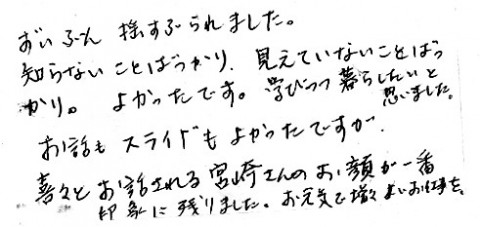 ずいぶん 揺すぶられました。
知らないことばっかり、見えていないことばっ
かり。 よかったです。学びつつ暮らしたいと
思いました。
お話も スライドも よかったですが、
喜々と お話される 宮崎さんの お顔が 一番
印象に 残りました。お元気で 増々 よいお仕事を。